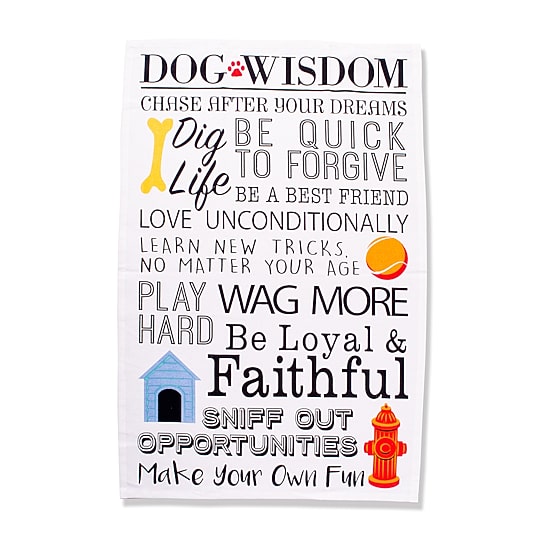 DOG WISDOM
CHASE AFTER YOUR DREAMS
Dig
Life
BE QUICK
TO FORGIVE
BE A BEST FRIEND
LOVE UNCONDITIONALLY
LEARN NEW TRICKS,
NO MATTER YOUR AGE
PLAY
HARD
WAG MORE
Be Loyal &
Faithful
SNIFF OUT
OPPORTUNITIES
Make Your Own Fun